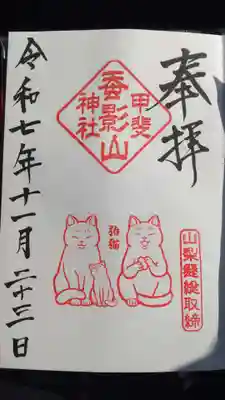 奉拝
甲斐
蚕影山
神社
狛猫
山梨縣総取締
令和七年十一月二十三日